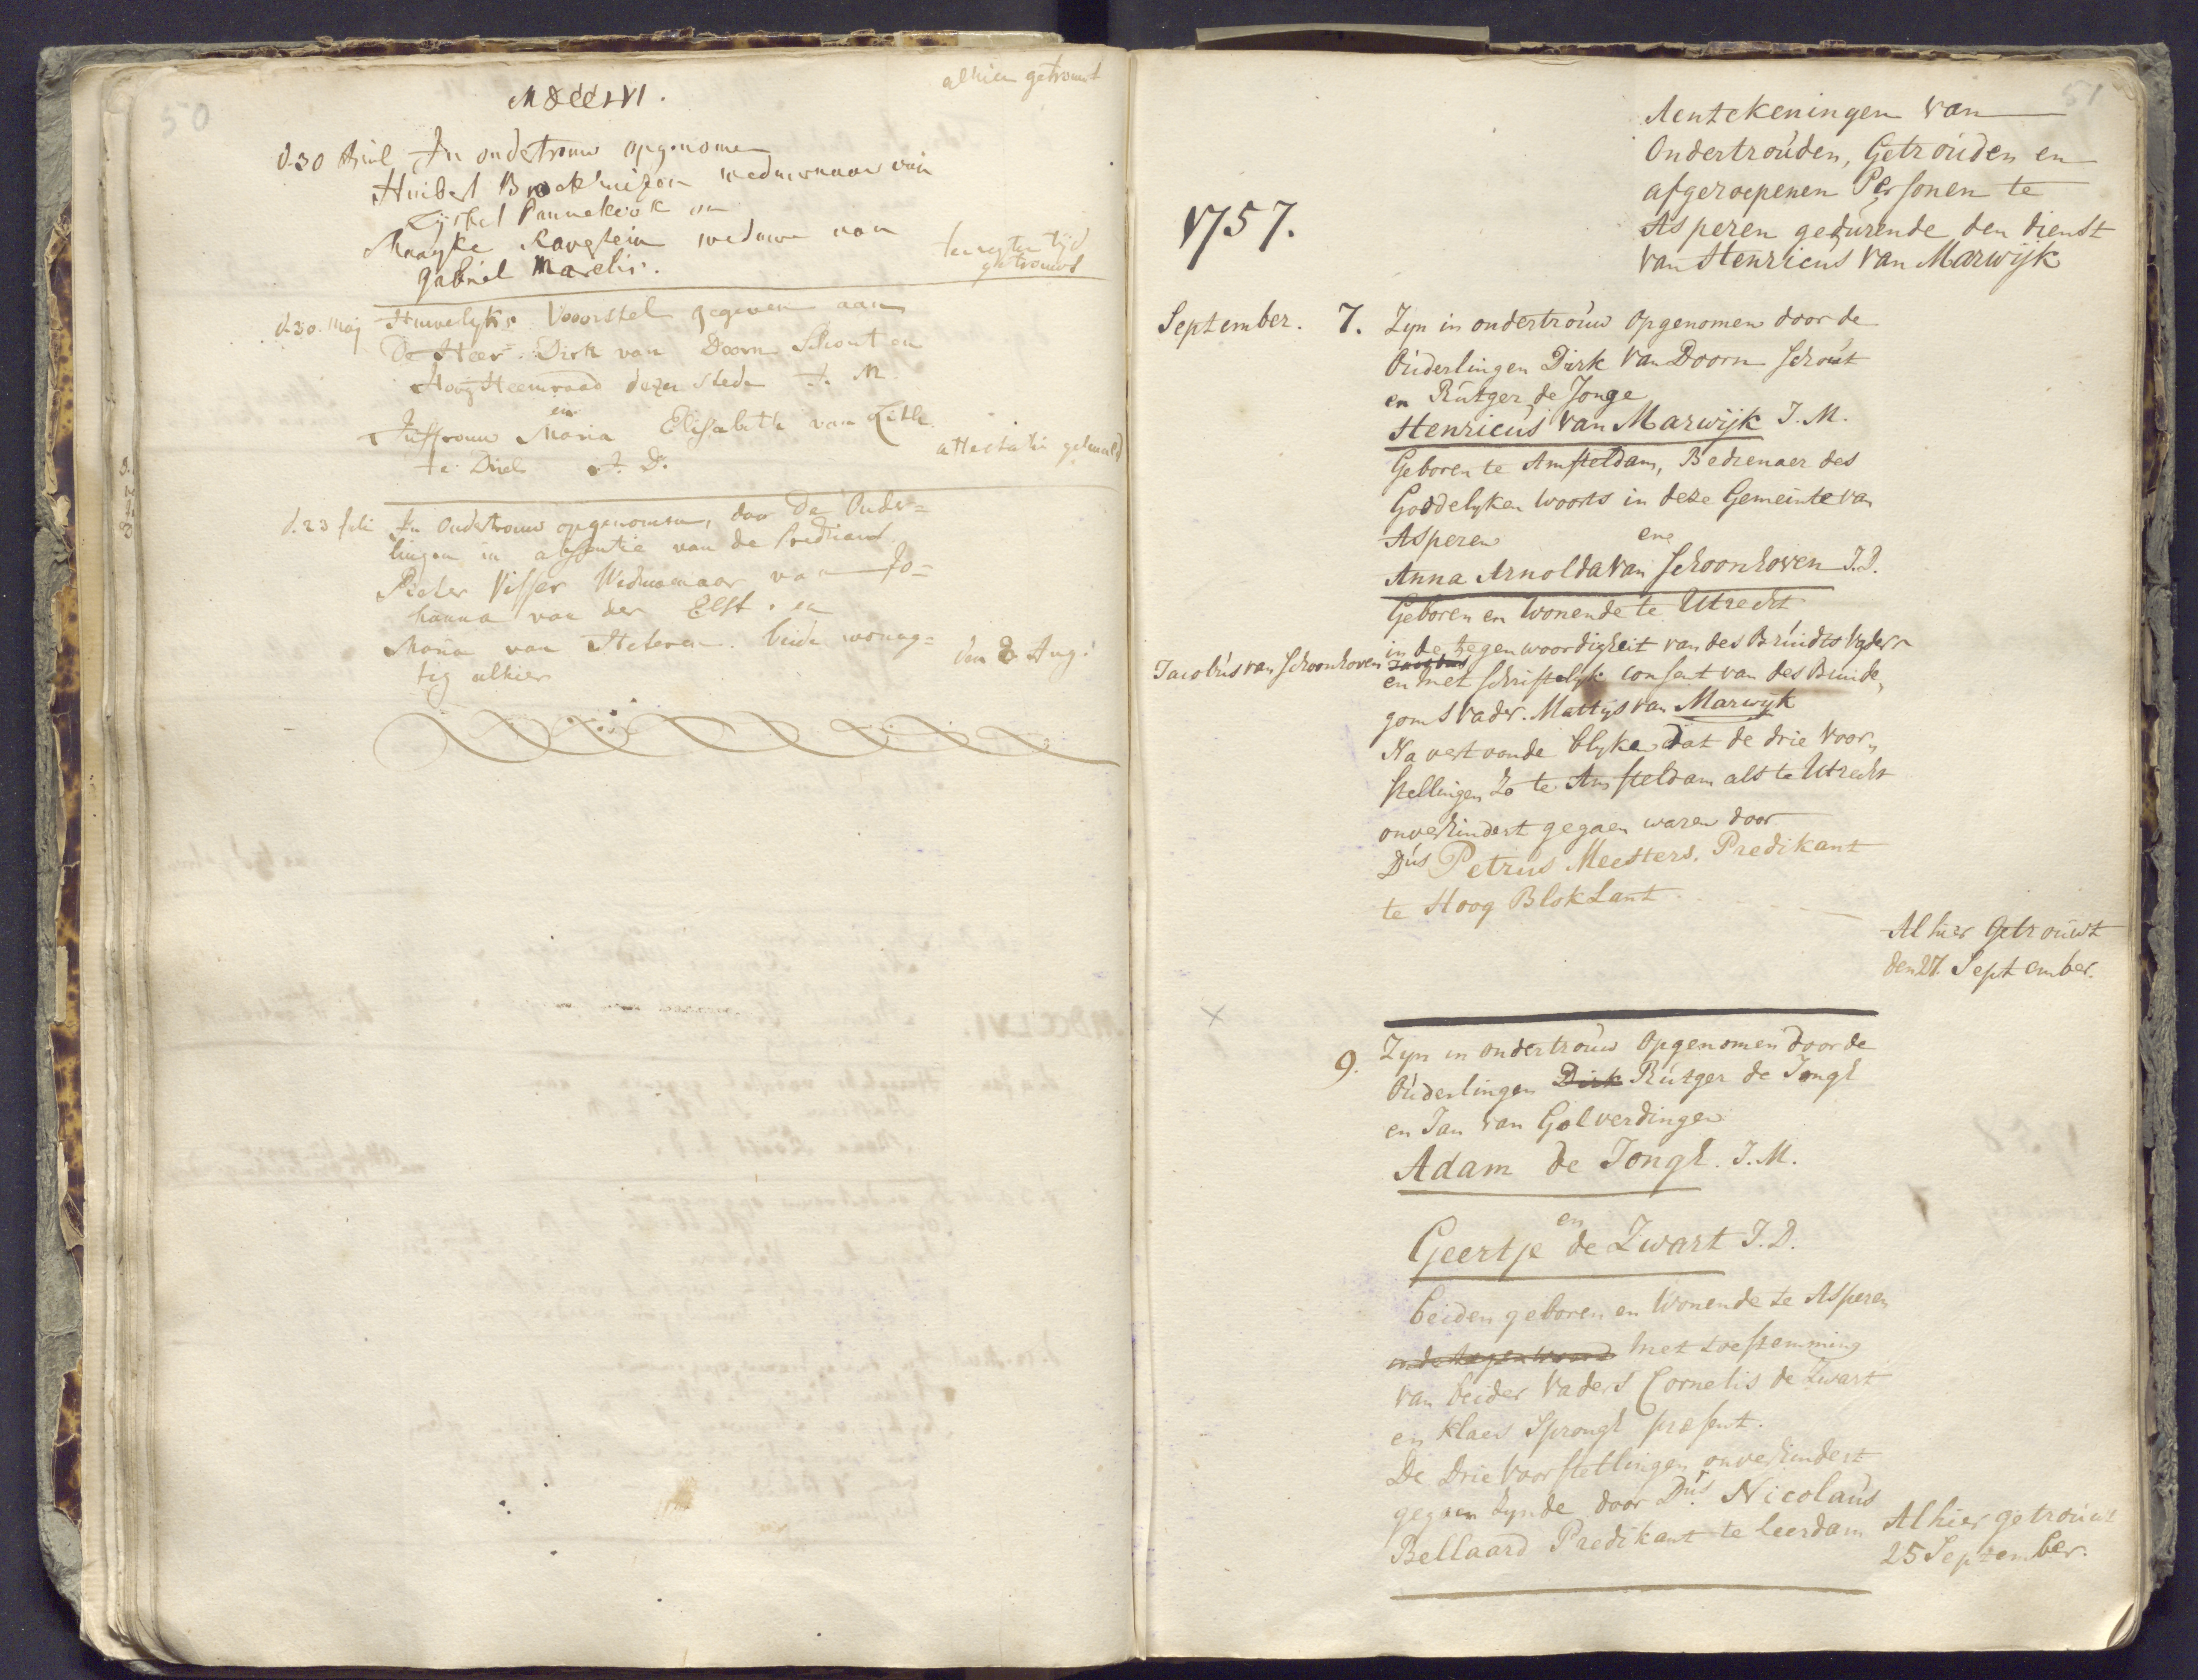 50
MDCCLVI.
alhier getrouwt
d. 30 April In ondertrouw opgenomen
Huibert Broekhuizen weduwnaar van
Lijsbet Pannekoek en
Maayke Ravestein weduwe van
gabriel Marelis.
ter eyter tijd
getrouwt
d. 30. Maj Huwelyks Voorstel gegeven aan
De Heer Dirk van Doorn Schout en
Hoog Heemraad dezer stede J. M.
en
Juffrouw Maria Elisabeth van Zitte
te Driel J. D.
attestatie gehaald
d. 23 Juli In Ondertrouw opgenomen, door De Ouder=
lingen in absentie van de Predicant
Pieter Visser Weduwnaar van Jo=
hanna van der Elst. en
Maria van Heteren. beide woonag=
tig alhier
den 8 Aug.
51
Aentekeningen van
Ondertrouden, Getrouden en
afgeroepenen Personen te
Asperen gedurende den dienst
van Henricus van Marwijk
1757.
September. 7. Zyn in ondertrouw opgenomen door de
Ouderlingen Dirk van Doorn schout
en Rutger de Jonge
Henricus van Marwijk J. M.
Geboren te Amsteldam, Bedienaer des
Goddelyken woorts in deze Gemeinte van
Asperen
ene
Anna Arnolda van Schoonhoven J. D.
Geboren en wonende te Utrecht
in de tegenwoordigheit van des Bruidts Vader
Jacobus van Schoonhoven
en met schriftelyk consent van des Bruide,
goms vader. Mattijs van Marwijk
Na vertoonde blyken dat de drie voor,
stellingen zo te Amsteldam als te Utrecht
onverhindert gegaen waren door
Dus Petrus Meesters. Predikant
te Hoog BlokLant.
Alhier Getrouwt
den 27. September.
9. Zyn in ondertrouw opgenomen door de
Ouderlingen Dirk Rutger de Jongh
en Jan van Golverdingen
Adam de Jongh. J. M.
en
Geertje de Zwart J. D.
beiden geboren en wonende te Asperen
in de tegenwoord met toestemming
van beider vaders Cornelis de Zwart
en Klaes Sprongh present.
De Drie voorstellingen onverhindert
gegaen zynde door Dus Nicolaus
Bellaard Predikant te Leerdam
Alhier getrouwt
25 September.